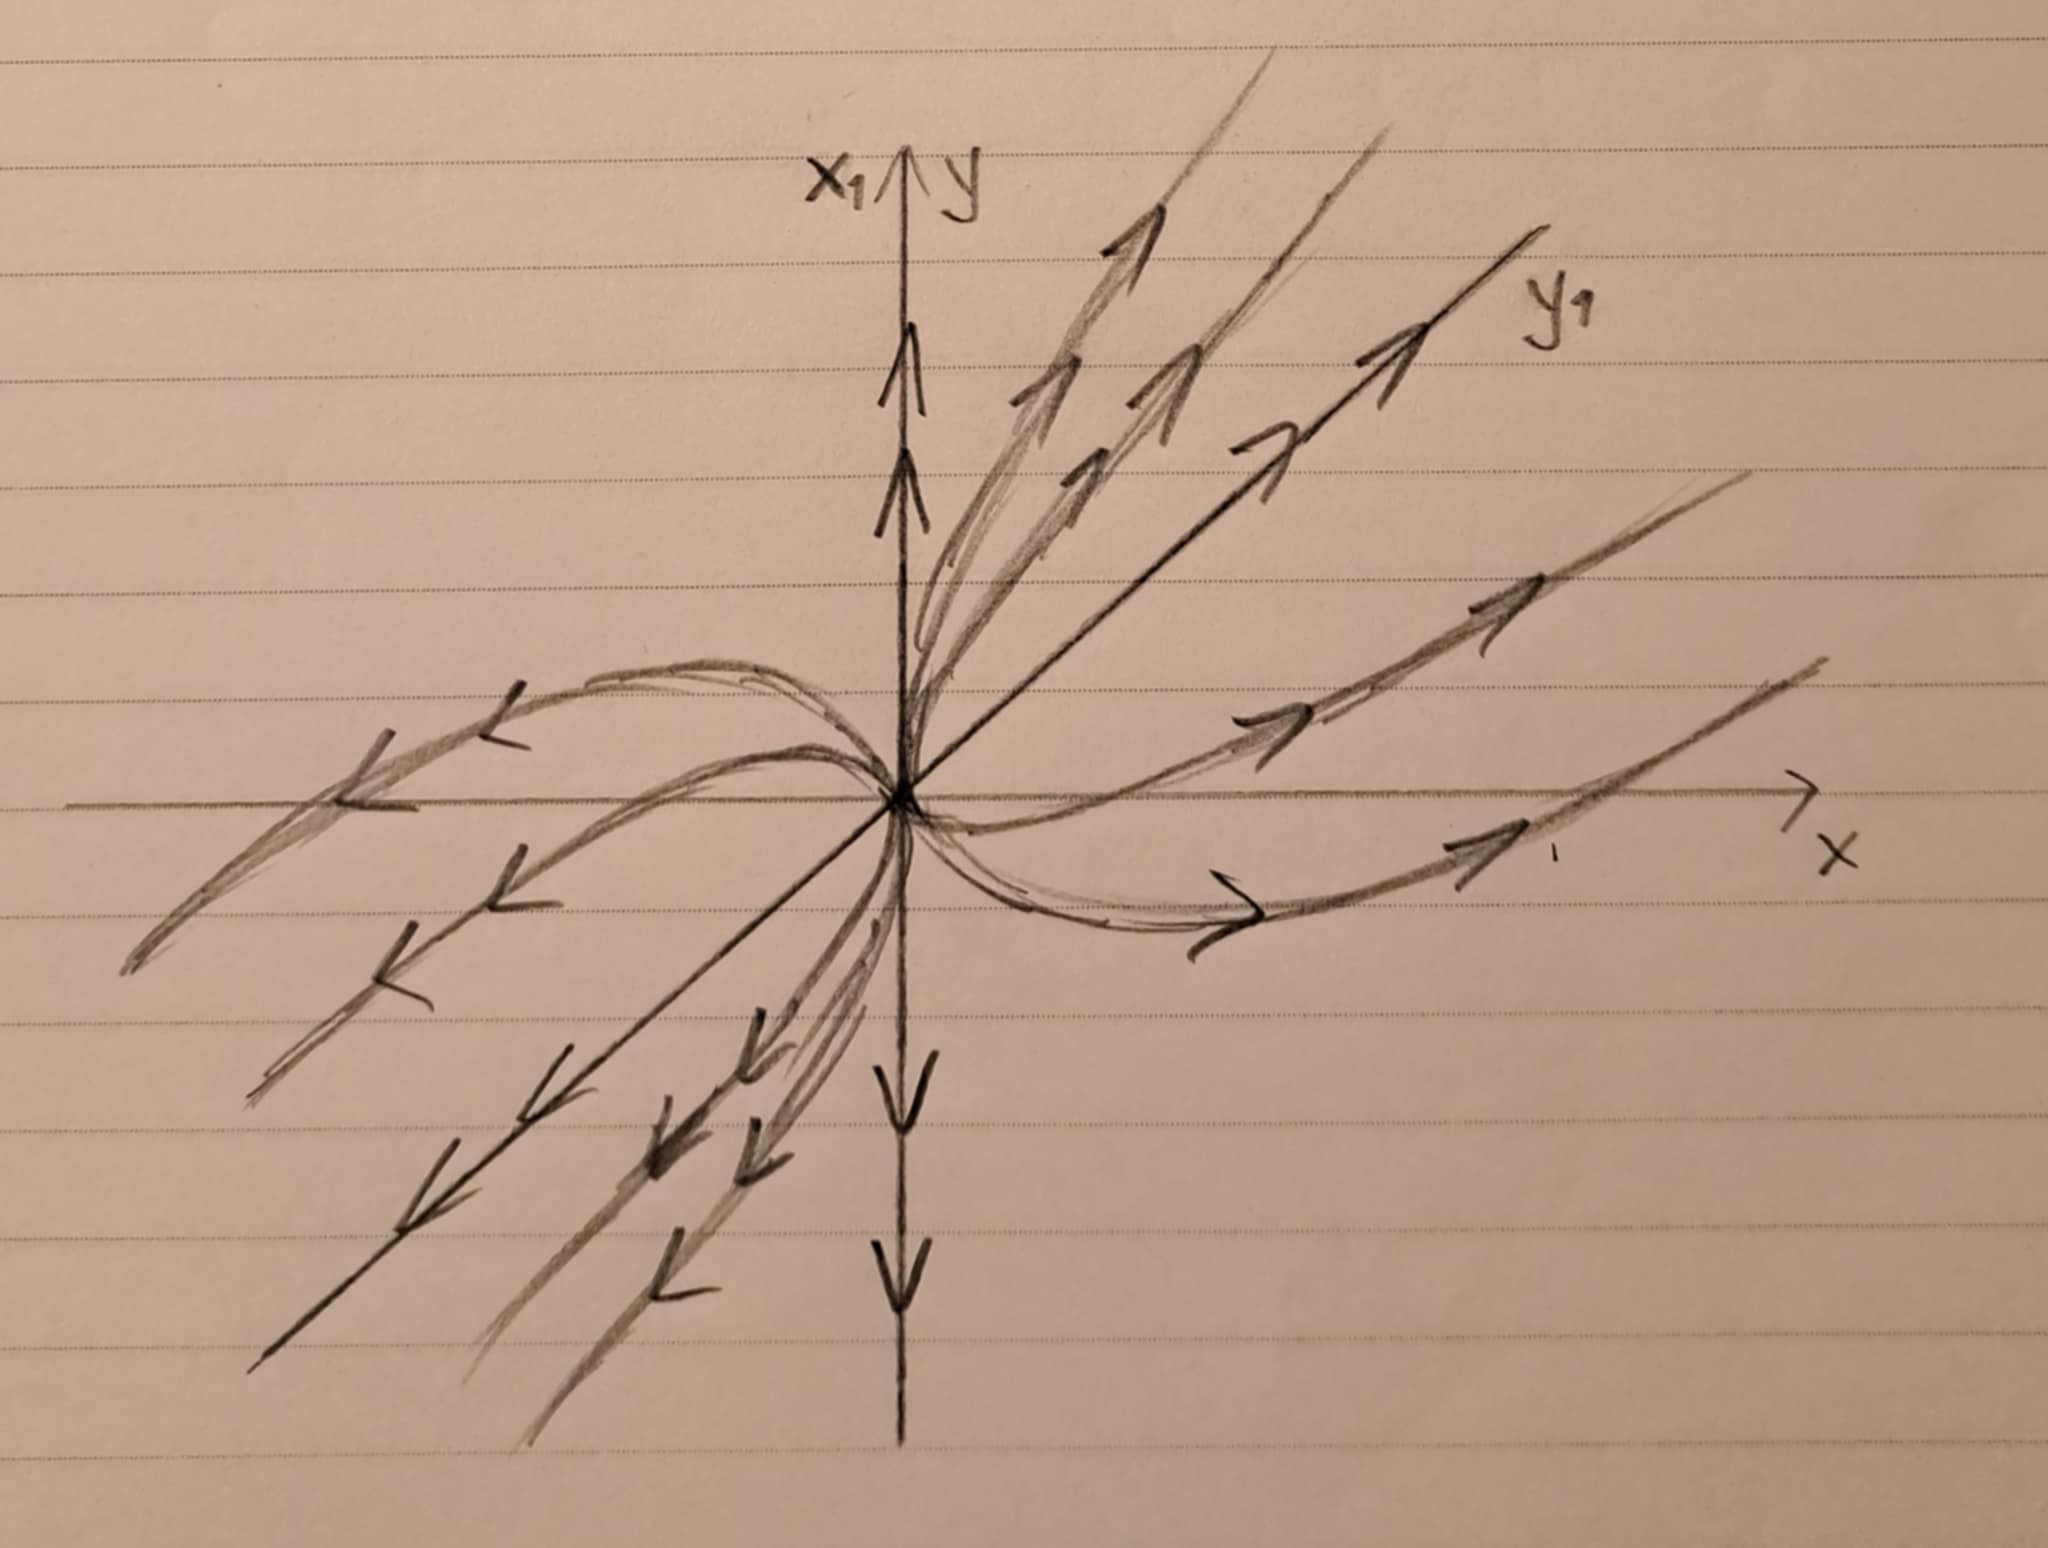 x₁ y
y₁
x